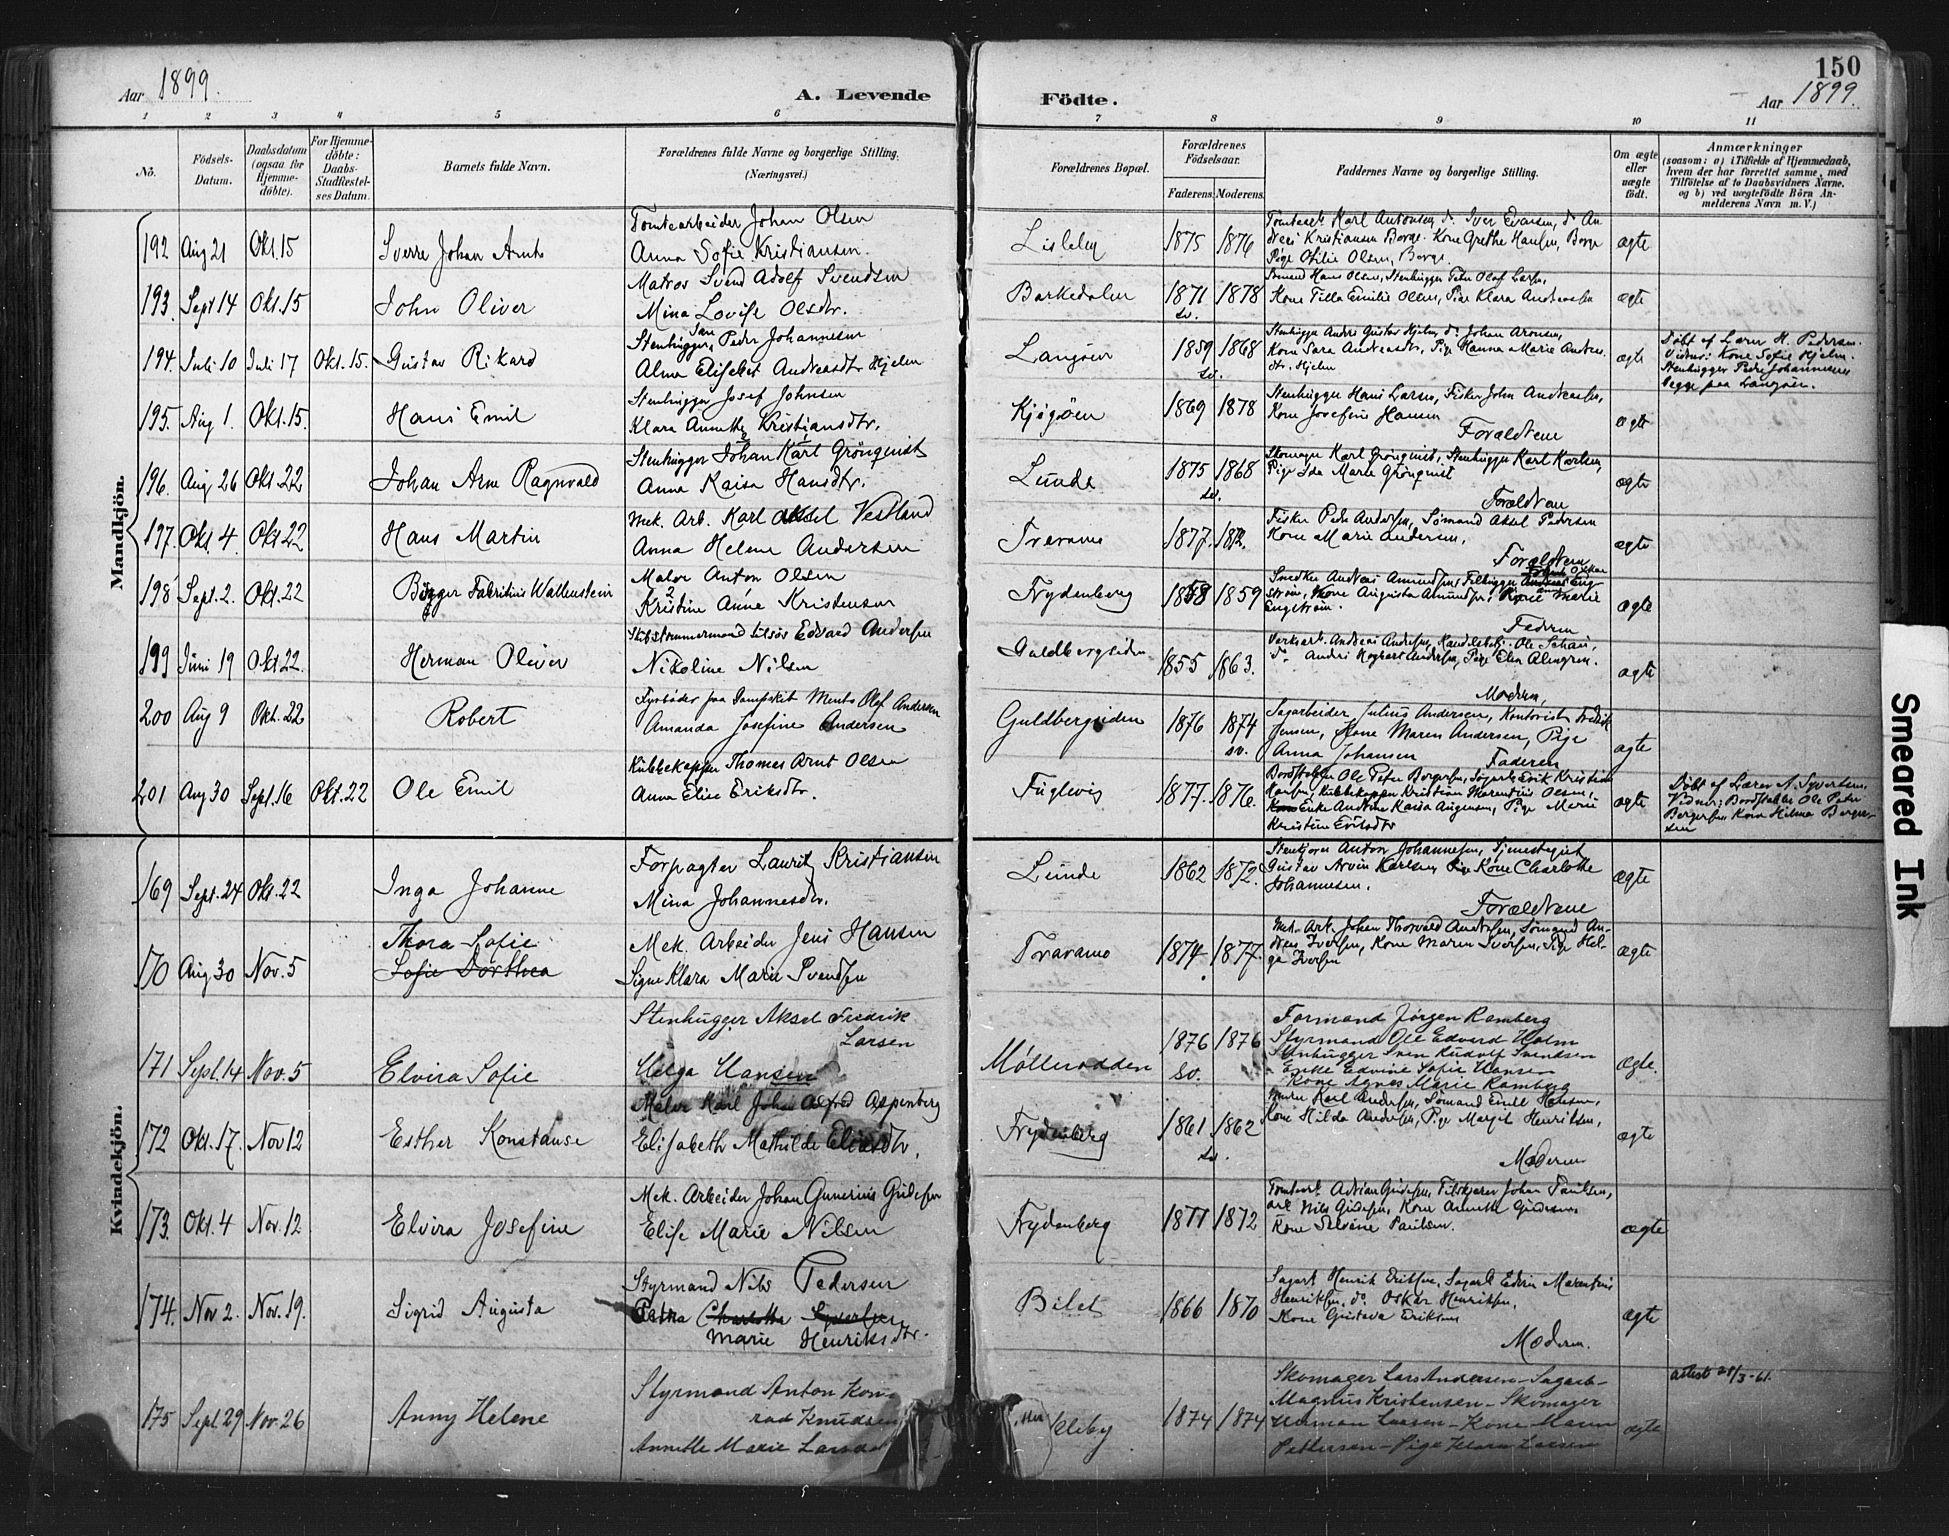 150
Aar 1899.
A. Levende
Födte.
Aar 1899.
1 2 3 4 5 6 7 8 9 10 11
No.
Födsels-Datum.
Daabsdatum (ogsaa for Hjemme-döbte).
For Hjemme-döbte: Daabs-Stadfæstel-ses Datum.
Barnets fulde Navn.
Forældrenes fulde Navne og borgerlige Stilling.
(Næringsvei.)
Forældrenes Bopæl.
Forældrenes Födselsaar.
Faderens. Moderens.
Faddernes Navne og borgerlige Stilling.
Om ægte eller uægte födt.
Anmærkninger
(saasom: a) i Tilfælde af Hjemmedaab,
hvem der har forrettet samme, med
Tilföielse af to Daabsvidners Navne.
og b) ved uægtefödte Börn An-
melderens Navn m. V.)
Mandkjön.
192 Aug 21 Okt. 15 Sverre Johan Arnt
Tomtearbeider Johan Olsen
Anna Sofie Kristiansen.
Lisleby 1875 1876
Tomtearb. Karl Antonsen, do. Iver Evensen, do. An-
dreas Kristiansen Borge. Kone Grethe Hansen, Borge
Pige Otilie Olsen, Borge
ægte
193. Sept 14 Okt. 15 John Oliver
Matros Svend Adolf Svendsen
Mina Lovise Olsdtr.
Barkedalen 1871 sv. 1878
Sømand Hans Olsen, Stenhugger Peter Olaf Larsen,
Kone Tilla Emilie Olsen, Pige Klara Andreassen
ægte
194. Juli 10 Juli 17 Okt. 15. Gustav Rikard
Stenhugger Peder Johannesen
Alma Elisabet Andreasdtr Hjelm
Langøen 1859 sv. 1868
Stenhugger Andrs Gustav Hjelm, do. Johan Aronsen,
Kone Sara Andreasdtr, Pige Hanna Marie Andreas-
dtr. Hjelm
ægte
Döbt af Lærer H. Pedersen.
Vidner: Kone Sofie Hjelm.
Stenhugger Peder Johannesen
begge paa Langøen.
195. Aug 1. Okt. 15. Hans Emil
Stenhugger Josef Johnsen
Klara Annette Kristiansdtr.
Kjøgøen 1869 1878
Stenhugger Hans Larsen, Fisker John Andreassen,
Kone Josefine Hansen
Forældrene
ægte
196. Aug 26 Okt 22 Johan Arne Ragnvald
Stenhugger Johan Karl Grönqvist
Anna Kaisa Hansdtr.
Lunde 1875 sv. 1868
Skomager Karl Grönqvist, Stenhugger Karl Karlsen
Pige Ida Marie Grönqvist
Forældrene
ægte
197. Okt. 4. Okt 22 Hans Martin
Mek. Arb. Karl Aksel Vestland
Anna Helene Andersen
Traramo 1877. 1872.
Fisker Peder Andersen, Sømand Aksel Pedersen
Kone Marie Andersen.
Forældrene
ægte
198 Sept. 2. Okt. 22 Birger Fabritius Wallenstein
Maler Anton Olsen
Kristine Anne Kristensen
Frydenberg 1858 1859
Snedker Andreas Amundsen, Filhugger Johan Oskar Eng-
strøm, Kone Augusta Amundsen, Marie
Engstrøm.
Faderen
ægte
199 Juni 19 Okt 22. Herman Oliver
Skibstømmermand tilsös Edvard Andersen
Nikoline Nilsen
Guldbergsiden 1855 1863.
Værksarb. Andreas Andersen, Handelsbetj. Ole Johan,
do. Andrs Hagbart Andersen, Pige Elen Almgren.
Moderen,
ægte
200 Aug 9 Okt. 22 Robert
Fyrbøder paa Dampskib Mento Olaf Andersen
Amanda Josefine Andersen
Guldbergsiden 1876 1874 sv.
Sagarbeider Julius Andersen, Kontorist Fredrik
Jensen, Kone Maren Andersen, Pige
Anna Johansen
Faderen
ægte
201 Aug 30 Sept. 16 Okt. 22 Ole Emil
Kubbekapper Thomas Arnt Olsen
Anna Elise Eriksdtr.
Fuglevig 1877. 1876.
Bordstabler Ole Peter Bergersen, Sagarb. Erik Kristian
Hansen, Kubbekapper Kristian Marentius Olsen,
Enke Andrine Kaisa Jungersen, Pige Marie
Kristine Eriksdtr
ægte
Döbt af Lærer A. Syvertsen.
Vidner: Bordstabler Ole Peder
Bergersen, Kone Hilma Berger-
sen
Kvindekjön.
169 Sept. 24 Okt. 22 Inga Johanne
Forpagter Laurits Kristiansen
Mina Johannesdtr.
Lunde 1862 1872.
Stenkjører Anton Johannesen, Tjenestegut
Gustav Arvin Karlsen, Kone Charlotte
Johannesen.
Forældrene
ægte
170 Aug 30 Nov. 5 Thora Sofie
Sofie Dorthea
Mek. Arbeider Jens Hansen
Signe Klara Marie Svendsen
Traramo 1874. 1877.
Mek. Arb. Johan Thorvald Andersen, Sømand An-
dreas Iversen, Kone Maren Iversen, Pige Hel-
ga Iversen
ægte
171 Sept. 14 Nov. 5 Elvira Sofie
Stenhugger Aksel Fredrik
Larsen
Helga Hansen
Møllerodden 1876 sv. 1876
Formand Jørgen Ramberg
Styrmand Ole Edvard Holm
Stenhugger Sven Rudolf Svendsen
Enke Edvine Sofie Hansen
Kone Agnes Marie Ramberg
ægte.
172 Okt. 17. Nov 12 Esther Konstanse
Maler Karl Johan Alfred Aspenberg
Elisabeth Mathilde Eliasdtr.
Frydenberg 1861 sv. 1862
Murer Karl Andersen, Sømand Emil Hansen,
Kone Hilda Andersen, Pige Margit Henriksen,
Moderen
ægte
173. Okt. 4 Nov. 12 Elvira Josefine
Mek. Arbeider Johan Gunerius Gudesen
Elise Marie Nilsen
Frydenberg 1871 1872
Tomtearb. Adrian Gudesen, Filskjærer Johan Paulsen,
arb. Nils Gudesen, Kone Annette Gudesen,
Kone Severine Paulsen.
ægte
174. Nov 2. Nov. 19. Sigrid Augusta
Styrmand Nils Pedersen
Petra Charlotte Syversen
Marie Henriksdtr.
Bilet 1866 1870
Sagarb. Henrik Eriksen, Sagarb. Edvin Marentius
Henriksen, do. Oskar Henriksen,
Kone Gustava Eriksen
Moderen.
ægte
175 Sept. 29 Nov. 26 Anny Helene
Styrmand Anton Kon-
rad Knudsen
Annette Marie Larsen
Veleby 1874 1874
Skomager Lars Andersen – Sagarb.
Magnus Kristensen – Skomager
Herman Larsen – Kone Maren
Pettersen – Pige Klara Larsen
ægte
attest 28/3-61.
Smeared Ink